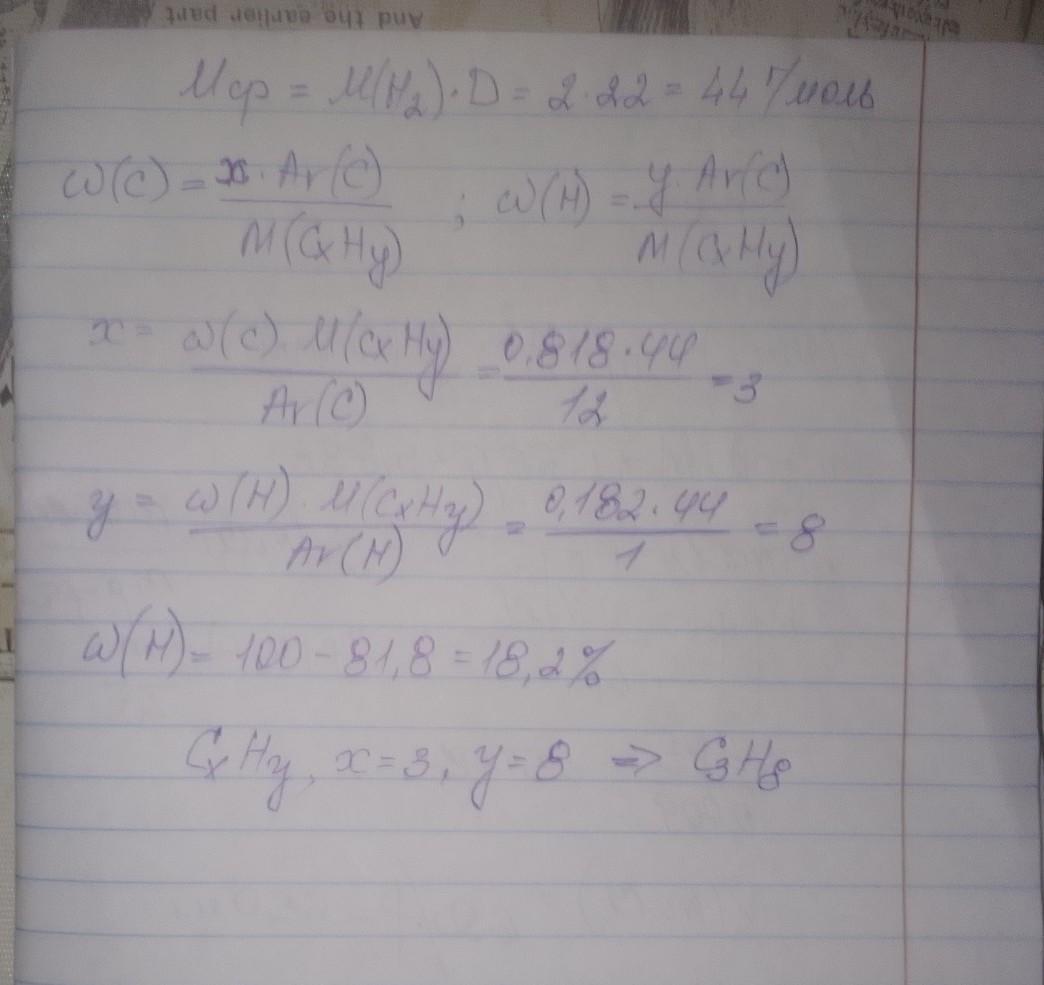 And the earlier part
Mср = M(H₂)·D = 2·22 = 44 г/моль
ω(C) = x·Ar(C) / M(CxHy) ; ω(H) = y·Ar(C) / M(CxHy)
x = ω(C)·M(CxHy) / Ar(C) = 0,818·44 / 12 = 3
y = ω(H)·M(CxHy) / Ar(H) = 0,182·44 / 1 = 8
ω(H) = 100 - 81,8 = 18,2%
CxHy, x=3, y=8 => C₃H₈